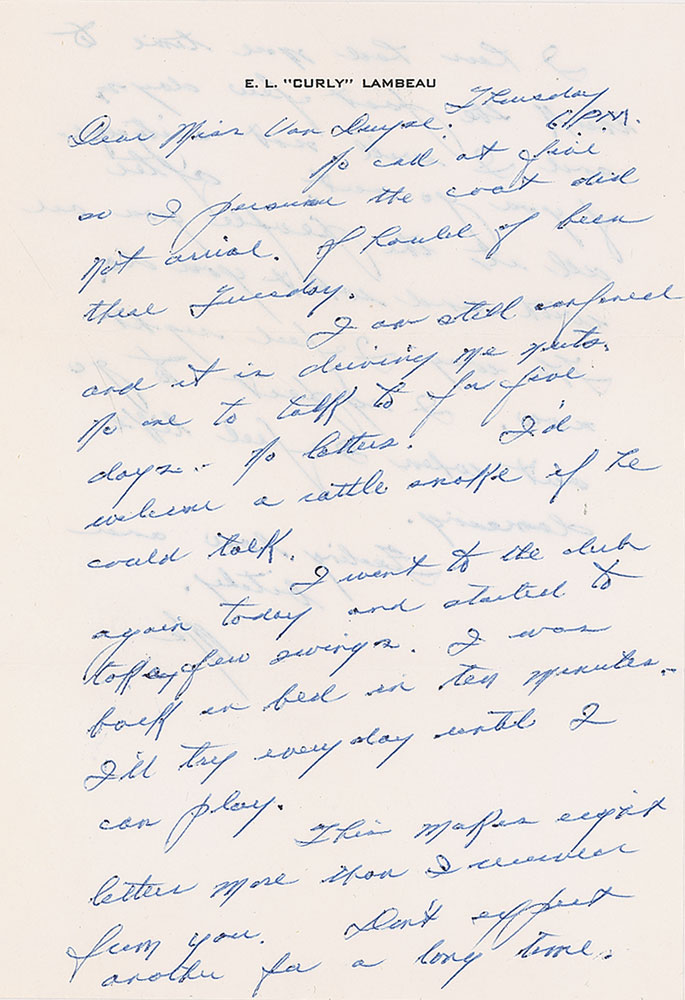 E. L. "CURLY" LAMBEAU
Thursday
6 P.M.
Dear Miss Van Duyse.
No call at five
so I persume the coat did
not arrive. It should of been
there Tuesday.
I am still confined
and it is driving me nuts.
No one to talk to for five
days - No letters. I'd
welcome a rattle snake if he
could talk.
I went to the club
again today and started to
take a few swings. I was
back in bed in ten minutes.
I'll try every day until I
can play.
This makes eight
letters more than I received
from you. Don't expect
another for a long time.